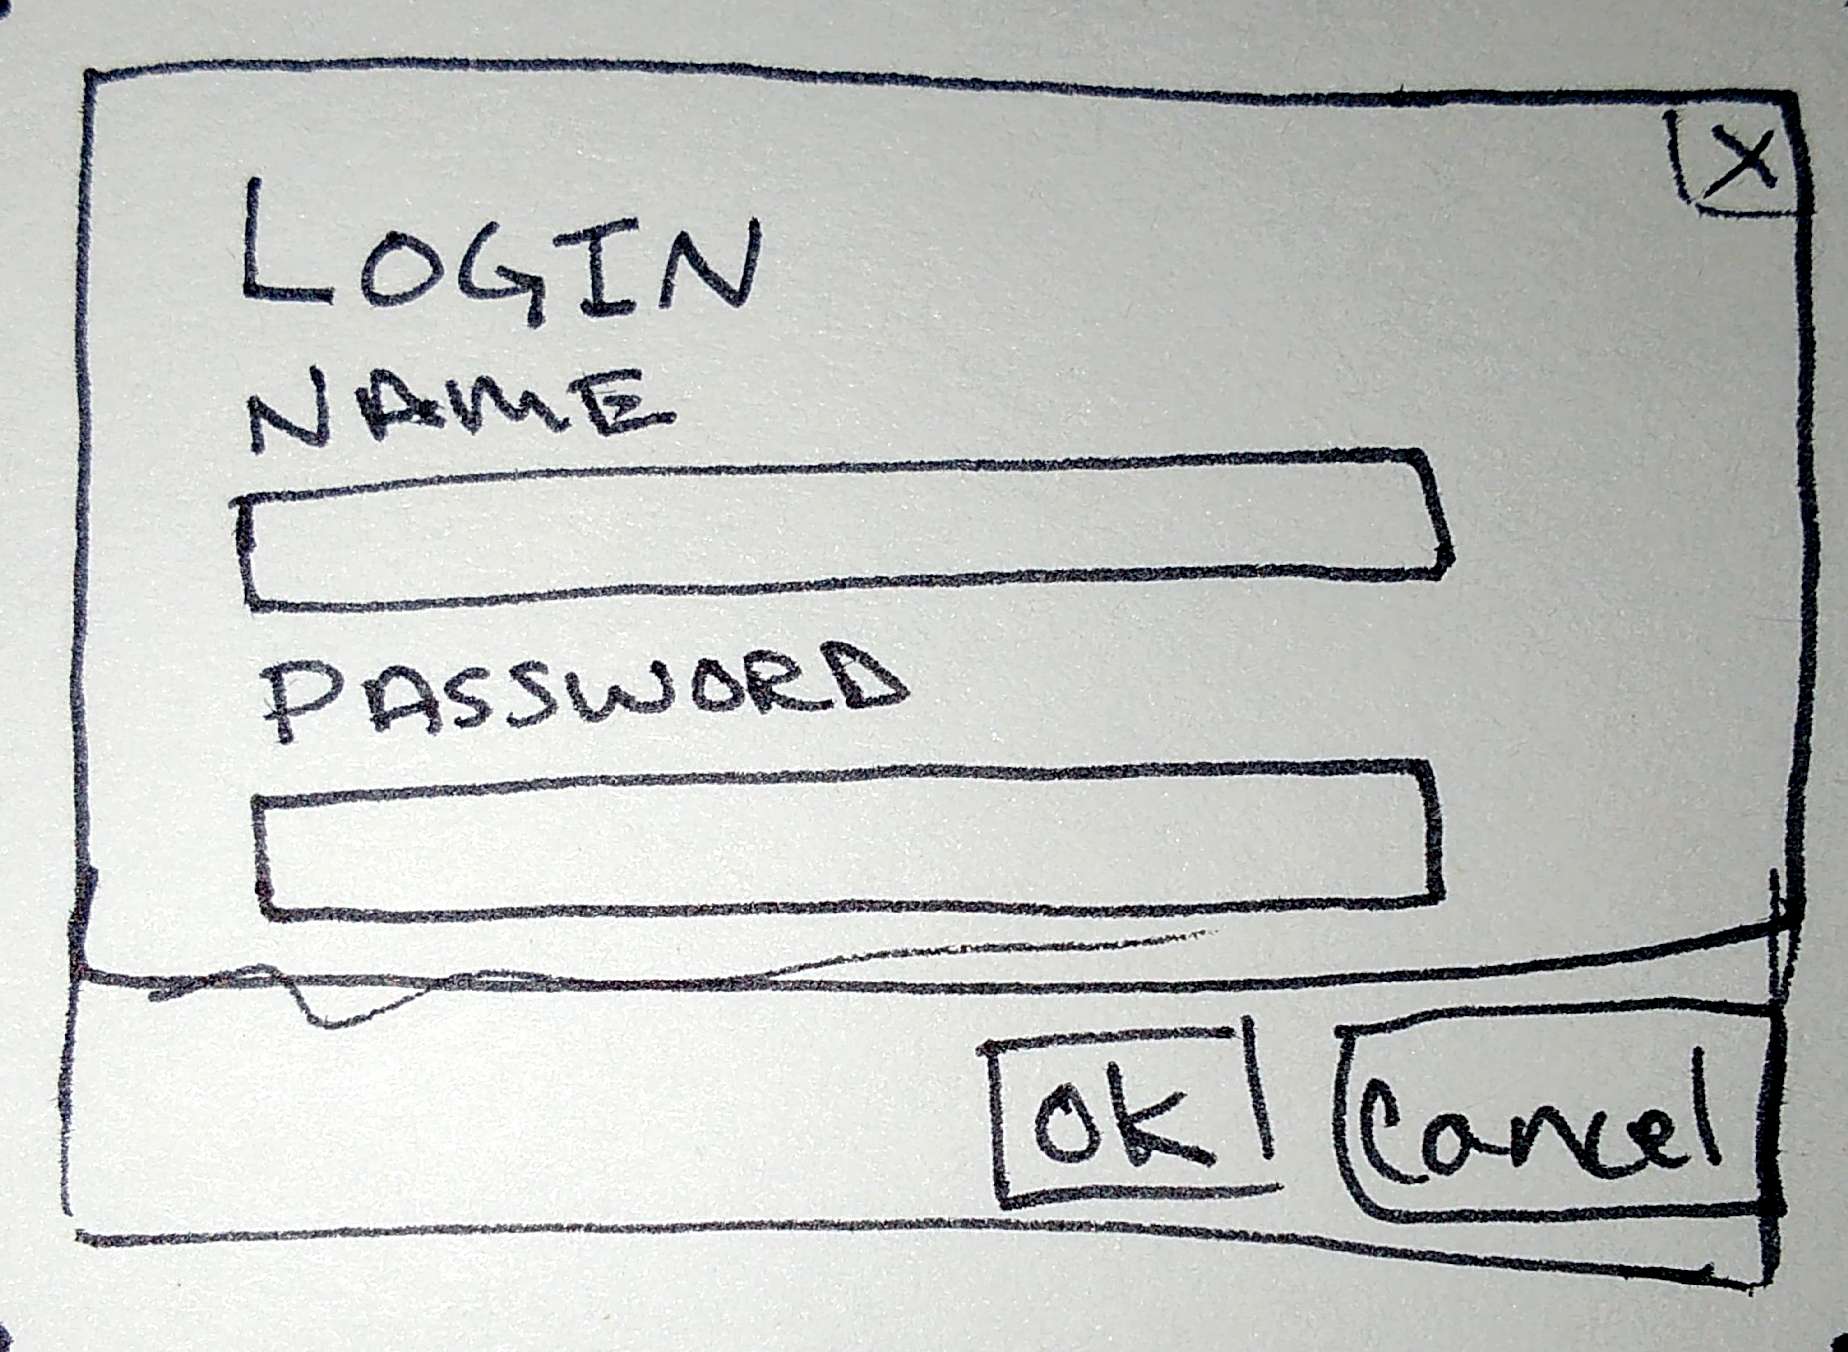 X
LOGIN
NAME
PASSWORD
OK Cancel